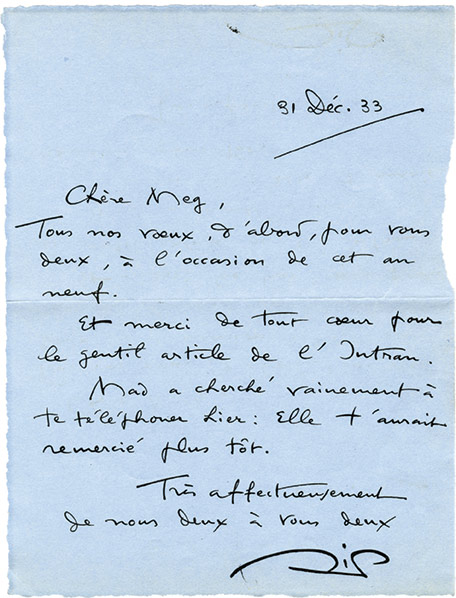 31 Déc. 33
Chère Meg,
Tous nos vœux, d'abord, pour vous
deux, à l'occasion de cet an
neuf.
Et merci de tout cœur pour
le gentil article de l'Intran.
Mad a cherché vainement à
te téléphoner hier : Elle t'aurait
remercié plus tôt.
Très affectueusement
de nous deux à vous deux